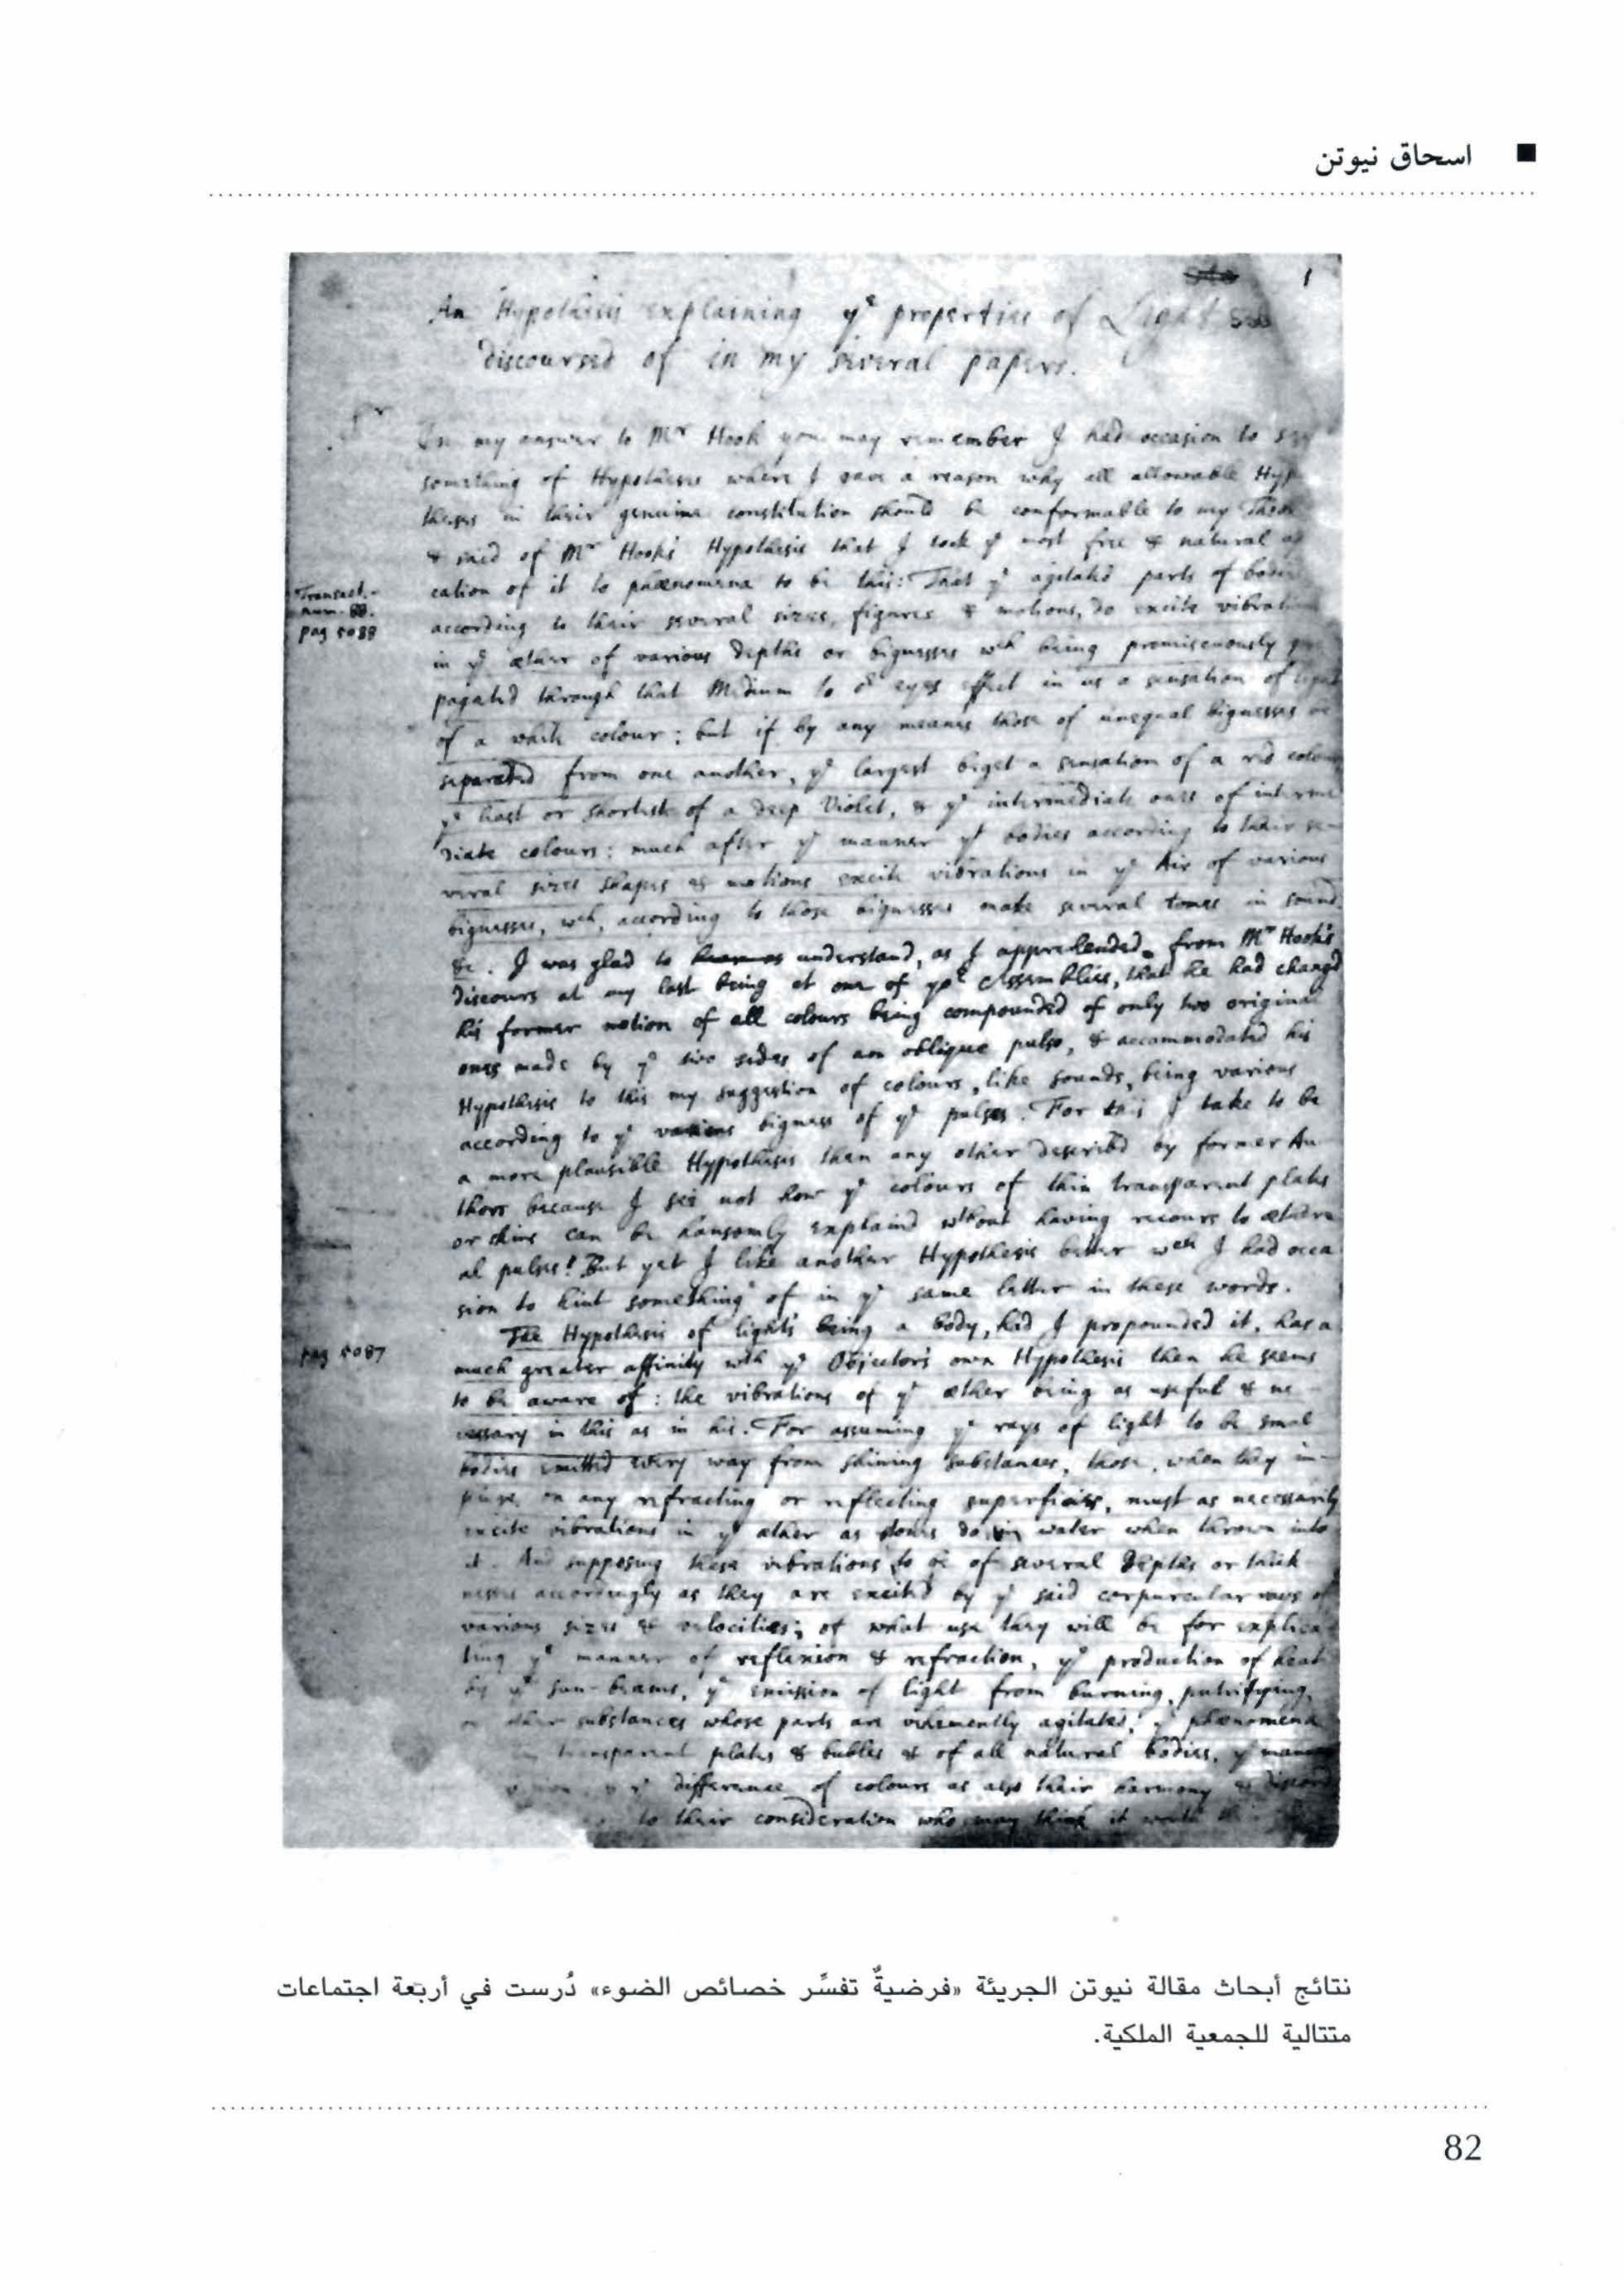 اسحاق نيوتن
1
An Hypothesis explaining yᵉ properties of Light
discoursed of in my severall papers.
Sʳ
In my answer to Mʳ Hook you may remember I had occasion to say
something of Hypotheses where I gave a reason why all allowable Hypo
theses in their genuine constitution should be conformable to my Theor
& said of Mʳ Hook's Hypothesis that I took yᵉ most free & natural ap
cation of it to phænomena to be this: That yᵉ agitated parts of bodies
Transact.
num. 88.
pag 5088
according to their several sizes, figures & motions, do excite vibrations
in yᵉ æther of various depths or bignesses wᶜʰ being promiscuously pro
pagated through that Medium to oʳ eyes effect in us a sensation of light
of a white colour; but if by any means those of unequal bignesses be
separated from one another, yᵉ largest beget a sensation of a red colour
yᵉ least or shortest of a deep Violet, & yᵉ intermediate ones of interme
diate colours: much after yᵉ manner yᵗ bodies according to their se
veral sizes shapes & motions excite vibrations in yᵉ Air of various
bignesses, wᶜʰ, according to those bignesses make several tones in sound
&c. I was glad to understand, as I apprehended, from Mʳ Hook's
discours at my last being at one of yoʳ Assemblies, that he had changed
his former notion of all colours being compounded of only two original
ones made by yᵉ two sides of an oblique pulse, & accommodated his
Hypothesis to this my suggestion of colours, like sounds, being various
according to yᵉ various bigness of yᵉ pulses. For this I take to be
a more plausible Hypothesis then any other described by former Au
thors because I see not how yᵉ colours of thin transparent plates
or skins can be hansomly explaind wᵗʰout having recours to æthere
al pulses! But yet I like another Hypothesis better wᶜʰ I had occa
sion to hint something of in yᵉ same letter in these words.
The Hypothesis of light's being a body, had I propounded it, has a
pag 5087
much greater affinity wᵗʰ yᵉ Objector's own Hypothesis then he seems
to be aware of: the vibrations of yᵉ æther being as useful & ne
cessary in this as in his. For assuming yᵉ rays of light to be smal
bodies emitted every way from shining substances, those, when they im
pinge on any refracting or reflecting superficies, must as necessarily
excite vibrations in yᵉ æther as stones do in water when thrown into
it. And supposing these vibrations to be of several depths or thick
nesses accordingly as they are excited by yᵉ said corpuscular rays of
various sizes & velocities; of what use they will be for explica
ting yᵉ manner of reflexion & refraction, yᵉ production of heat
by yᵉ sun-beams, yᵉ emission of light from burning, putrifying,
or other substances whose parts are vehemently agitated, yᵉ phænomena
transparent plates & bubles & of all natural bodies, yᵉ manner
yᵉ difference of colours as also their harmony & discord
to their consideration who may think it worth
نتائج أبحاث مقالة نيوتن الجريئة «فرضيةٌ تفسِّر خصائص الضوء» دُرست في أربعة اجتماعات
متتالية للجمعية الملكية.
82